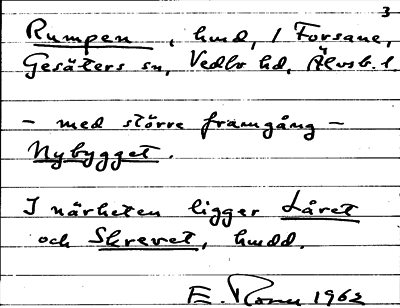 3
Rumpen, hmd, i Forsane,
Gesäters sn, Vedbo hd, Älvsb. l.
- med större framgång -
Nybygget.
I närheten ligger Låret
och Skrevet, hmdd.
E. 1962